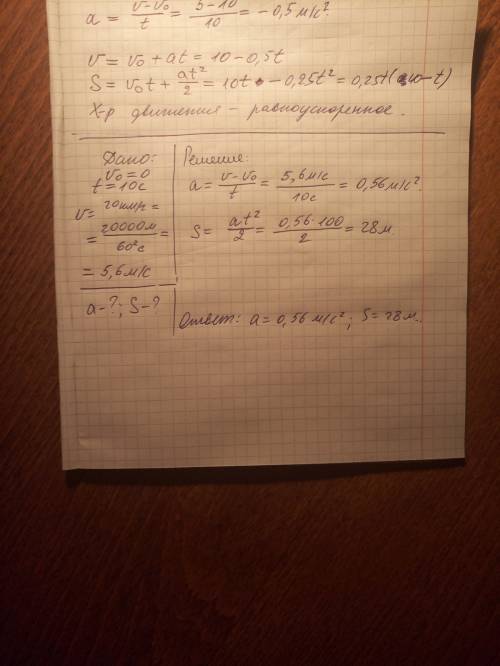 a = (v-v₀)/t = (5-10)/10 = -0,5 м/с².
v = v₀ + at = 10 - 0,5t
S = v₀t + at²/2 = 10t - 0,25t² = 0,25t(40-t)
Х-р движения - равноускоренное.
Дано:
v₀ = 0
t = 10с
v = 20км/ч =
= 20000м/60²с =
= 5,6м/с
a-?; S-?
Решение:
a = (v-v₀)/t = 5,6м/с/10с = 0,56м/с².
S = at²/2 = 0,56·100/2 = 28м.
Ответ: a = 0,56 м/с²; S = 28м.